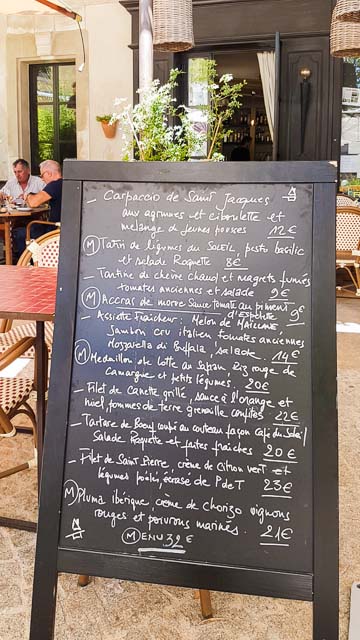 - Carpaccio de Saint Jacques
aux agrumes et ciboulette et
mélange de jeunes pousses 12 €
(M) Tatin de légumes du SOLEIL, pesto basilic
et salade Roquette 8€
- Tartine de chèvre chaud et magrets fumés
tomates anciennes et salade 9€
(M) Accras de morue Sauce tomate au piment
d'Espelette 9€
- Assiette Fraîcheur : Melon de MAILLANE,
Jambon cru italien tomates anciennes
Mozzarella di Buffala, salade. 14€
(M) Medaillon de Lotte au Safran Riz rouge de
Camargue et petits légumes. 20€
- Filet de Canette grillé, sauce à l'orange et
miel, pommes de terre grenaille confites 22€
- Tartare de Boeuf coupé au couteau façon Café du Soleil
Salade Roquette et frites fraîches 20€
- Filet de Saint Pierre, crème de Citron vert et
légumes poêlés, écrasé de P de T 23€
(M) Pluma Ibérique crème de chorizo oignons
rouges et poivrons marinés. 21€
(M)ENU 32 €